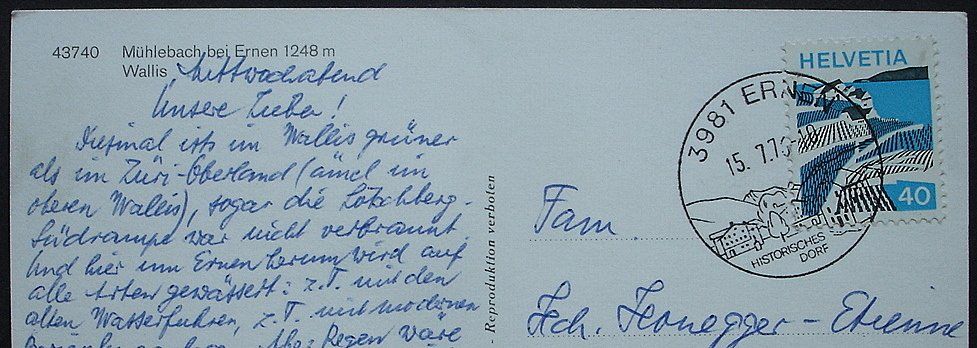 43740 Mühlebach bei Ernen 1248 m
Wallis
Mittwochabend
Unsere Lieben!
Diesmal ists im Wallis grüner
als im Züri-Oberland (ämel im
oberen Wallis), sogar die Lötschberg-
Südrampe war nicht verbrannt.
Und hier um Ernen herum wird auf
alle Arten gewässert: z.T. mit den
alten Wasserfuhren, z.T. mit modernen
Aber Regen wäre
Reproduktion verboten
Fam.
Honegger-Etienne
3981 ERNEN
15. 7.76
HISTORISCHES
DORF
HELVETIA
40